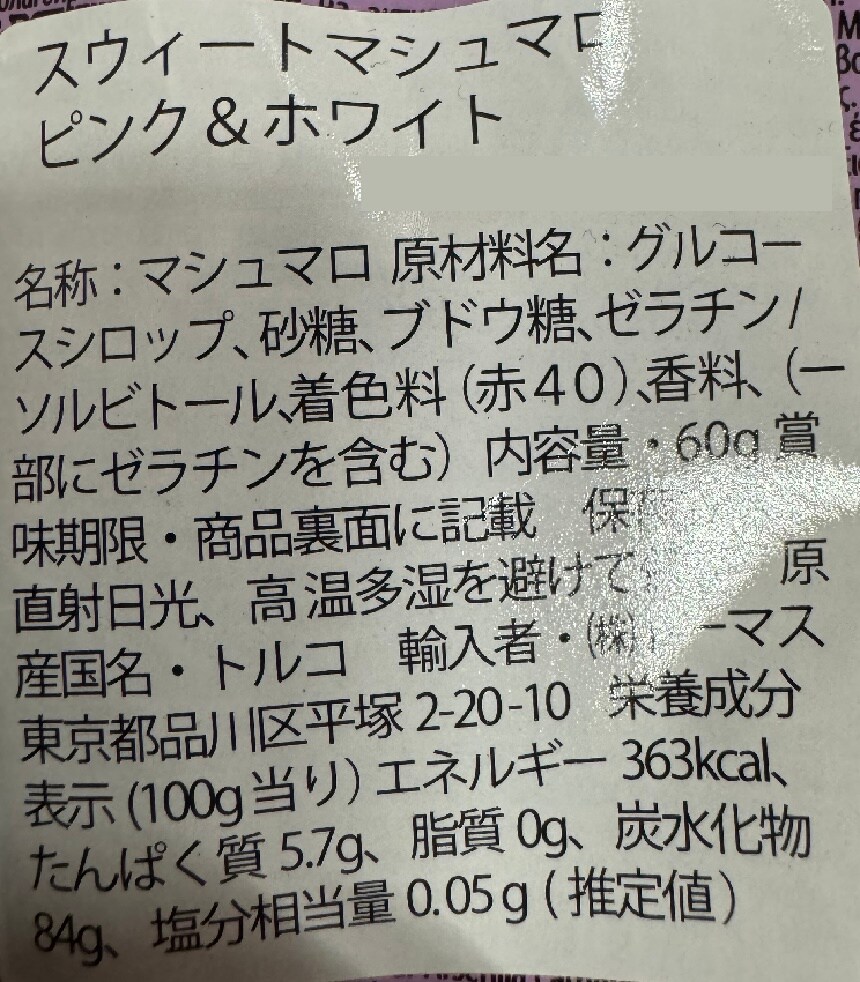 スウィートマシュマロ
ピンク＆ホワイト
名称：マシュマロ 原材料名：グルコー
スシロップ、砂糖、ブドウ糖、ゼラチン/
ソルビトール、着色料（赤４０）、香料、（一
部にゼラチンを含む） 内容量・60g 賞
味期限・商品裏面に記載 保
直射日光、高温多湿を避けて 原
産国名・トルコ 輸入者・(株) ーマス
東京都品川区平塚 2-20-10 栄養成分
表示 (100g当り) エネルギー 363kcal、
たんぱく質 5.7g、脂質 0g、炭水化物
84g、塩分相当量 0.05g (推定値)